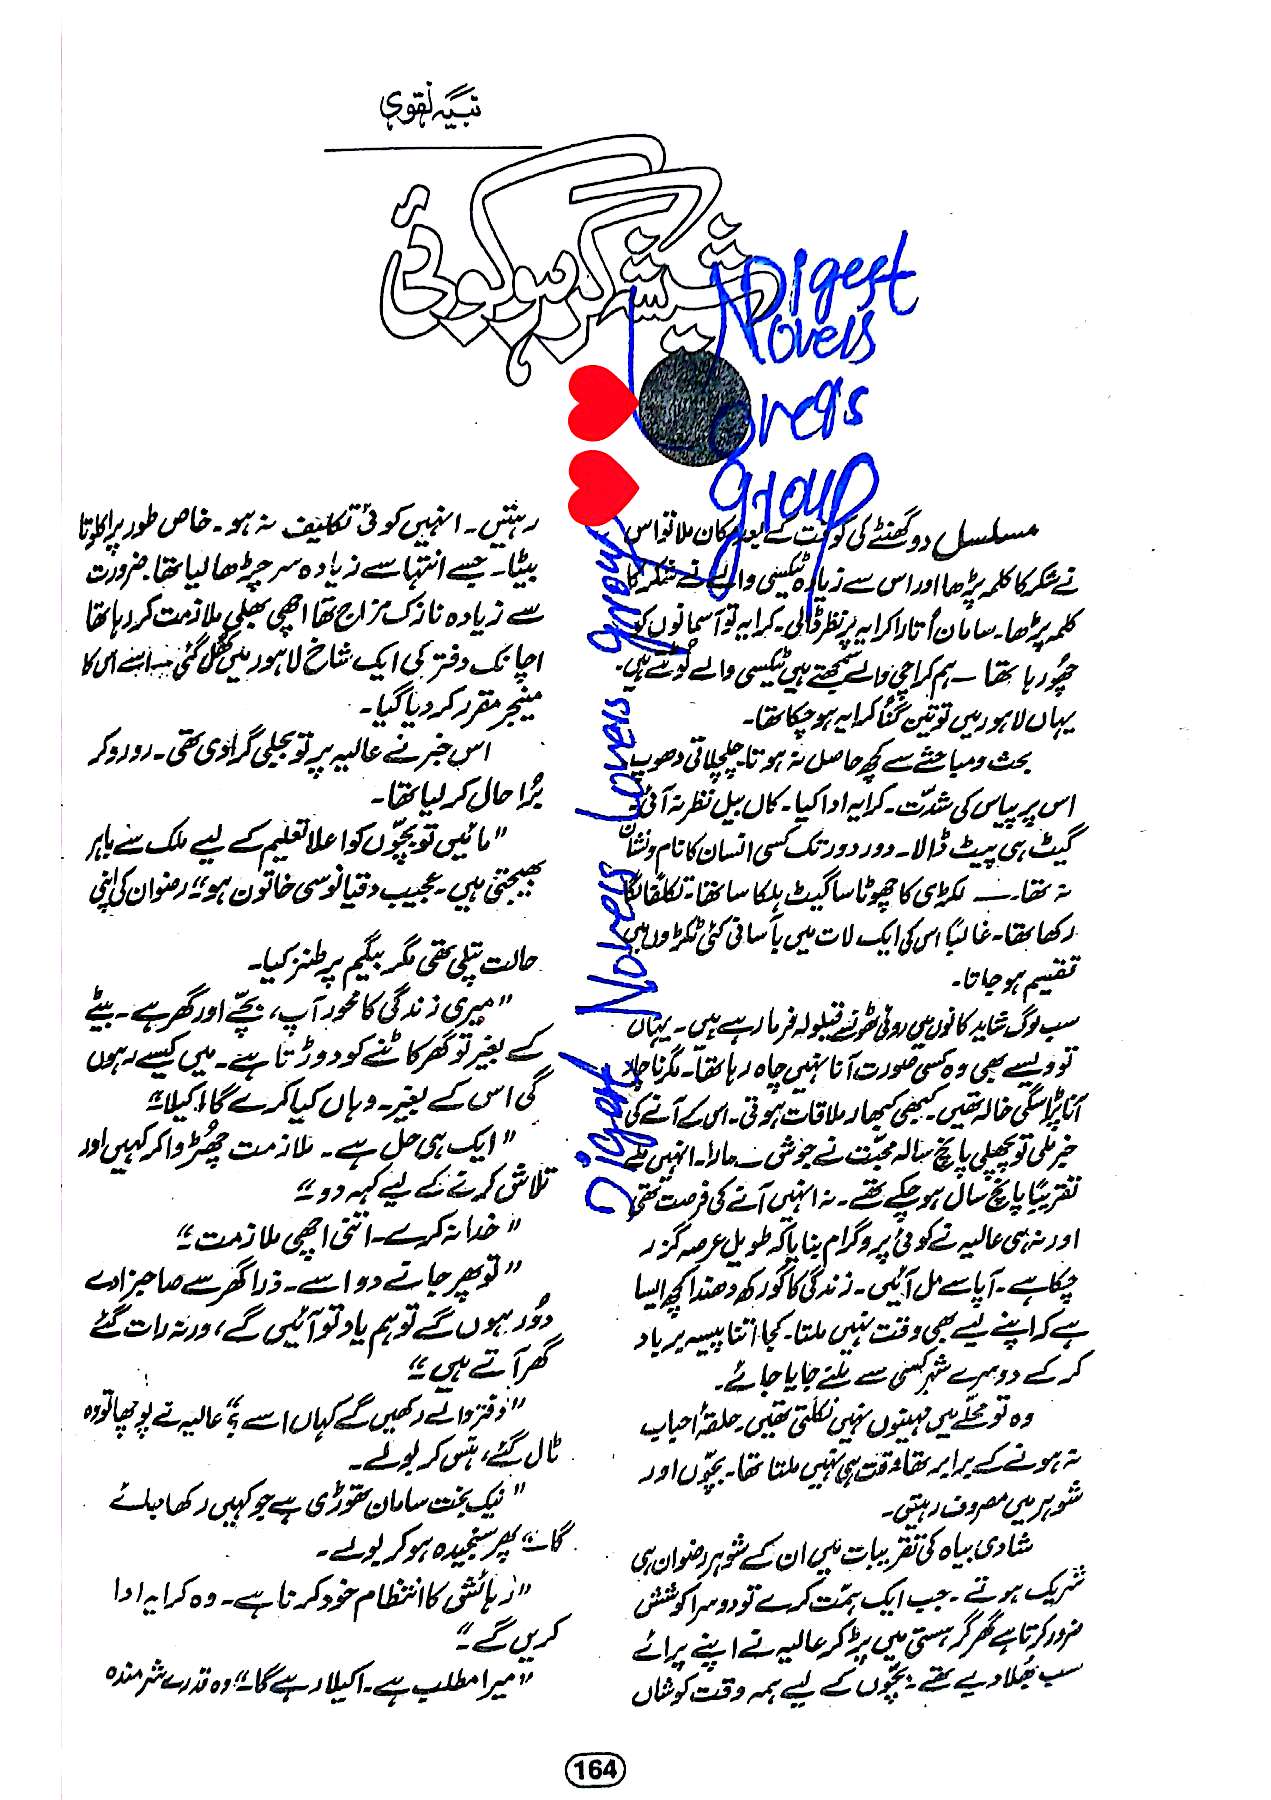 تبیہ نقوی
شیشہ گر ہو کوئی
Digest
Novels
Lovers
group
Digest Novels Lovers group
مسلسل دو گھنٹے کی کوفت کے بعد مکان ملا تو اس
نے شکر کا کلمہ پڑھا اور اس سے زیادہ ٹیکسی والے نے شکر کا
کلمہ پڑھا۔ سامان اُتارا کرایہ پر نظر ڈالی۔ کرایہ تو آسمانوں کو
چھُو رہا تھا ۔ ہم کراچی والے سمجھتے ہیں ٹیکسی والے لُوٹتے ہیں۔
یہاں لاہور میں تو تین گُنا کرایہ ہو چکا تھا۔
بحث و مباحثے سے کچھ حاصل نہ ہوتا۔ چلچلاتی دھوپ
اس پر پیاس کی شدّت۔ کرایہ ادا کیا۔ کال بیل نظر نہ آئی۔
گیٹ ہی پیٹ ڈالا۔ دور دور تک کسی انسان کا نام و نشان
نہ تھا۔ ۔ لکڑی کا چھوٹا سا گیٹ ہلکا سا تھا۔ تکلفاً لگا
رکھا تھا۔ غالباً اس کی ایک لات میں بآسانی کئی ٹکڑوں میں
تقسیم ہو جاتا۔
سب لوگ شاید کانوں میں روئی ٹھونسے قیلولہ فرما رہے ہیں۔ یہاں
تو ویسے بھی وہ کسی صورت آنا نہیں چاہ رہا تھا۔ مگر ناچار
آنا پڑا سگی خالہ تھیں۔ کبھی کبھار ملاقات ہوتی۔ اس کے آنے کی
خبر ملی تو پچھلی پانچ سالہ محبّت نے جوش مارا۔ انہیں ملے
تقریباً پانچ سال ہو چکے تھے۔ نہ انہیں آنے کی فرصت تھی
اور نہ ہی عالیہ نے کوئی پروگرام بنایا کہ طویل عرصہ گزر
چکا ہے۔ آپا سے مل آئیں۔ زندگی کا گورکھ دھندا کچھ ایسا
ہے کہ اپنے لیے بھی وقت نہیں ملتا۔ کجا اتنا پیسہ برباد
کر کے دوسرے شہر کسی سے ملنے جایا جائے۔
وہ تو محلّے میں مہینوں نہیں نکلتی تھیں۔ حلقۂ احباب
نہ ہونے کے برابر تھا وقت ہی نہیں ملتا تھا۔ بچّوں اور
شوہر میں مصروف رہتیں۔
شادی بیاہ کی تقریبات میں ان کے شوہر رضوان ہی
شریک ہوتے۔ جب ایک ہمّت کرے تو دوسرا کوشش
ضرور کرتا ہے گھر گرہستی میں پڑ کر عالیہ نے اپنے پرائے
سب بھُلا دیے تھے۔ بچّوں کے لیے ہمہ وقت کوشاں
رہتیں۔ انہیں کوئی تکلیف نہ ہو۔ خاص طور پر اکلوتا
بیٹا۔ جسے انتہا سے زیادہ سر چڑھا لیا تھا۔ ضرورت
سے زیادہ نازک مزاج تھا اچھی بھلی ملازمت کر رہا تھا
اچانک دفتر کی ایک شاخ لاہور میں کھُل گئی اسے اس کا
مینجر مقرر کر دیا گیا۔
اس خبر نے عالیہ پر تو بجلی گرا دی تھی۔ رو رو کر
بُرا حال کر لیا تھا۔
"مائیں تو بچّوں کو اعلا تعلیم کے لیے ملک سے باہر
بھیجتی ہیں۔ عجیب دقیانوسی خاتون ہو" رضوان کی اپنی
حالت پتلی تھی مگر بیگم پر طنز کیا۔
"میری زندگی کا محور آپ، بچّے اور گھر ہے۔ بیٹے
کے بغیر تو گھر کاٹنے کو دوڑتا ہے۔ میں کیسے رہوں
گی اس کے بغیر۔ وہاں کیا کرے گا اکیلا۔"
"ایک ہی حل ہے۔ ملازمت چھُڑوا کر کہیں اور
تلاش کرنے کے لیے کہہ دو۔"
"خدا نہ کرے۔ اتنی اچھی ملازمت۔"
"تو پھر جانے دو اسے۔ ذرا گھر سے صاحبزادے
دُور ہوں گے تو ہم یاد تو آئیں گے، ورنہ رات گئے
گھر آتے ہیں۔"
"دفتر والے رکھیں گے کہاں اسے؟" عالیہ نے پوچھا تو وہ
ٹال گئے، ہنس کر بولے۔
"نیک بخت سامان تھوڑی ہے جو کہیں رکھا جائے
گا۔" پھر سنجیدہ ہو کر بولے۔
"رہائشی کا انتظام خود کرنا ہے۔ وہ کرایہ ادا
کریں گے۔"
"میرا مطلب ہے۔ اکیلا رہے گا۔" وہ قدرے شرمندہ
164